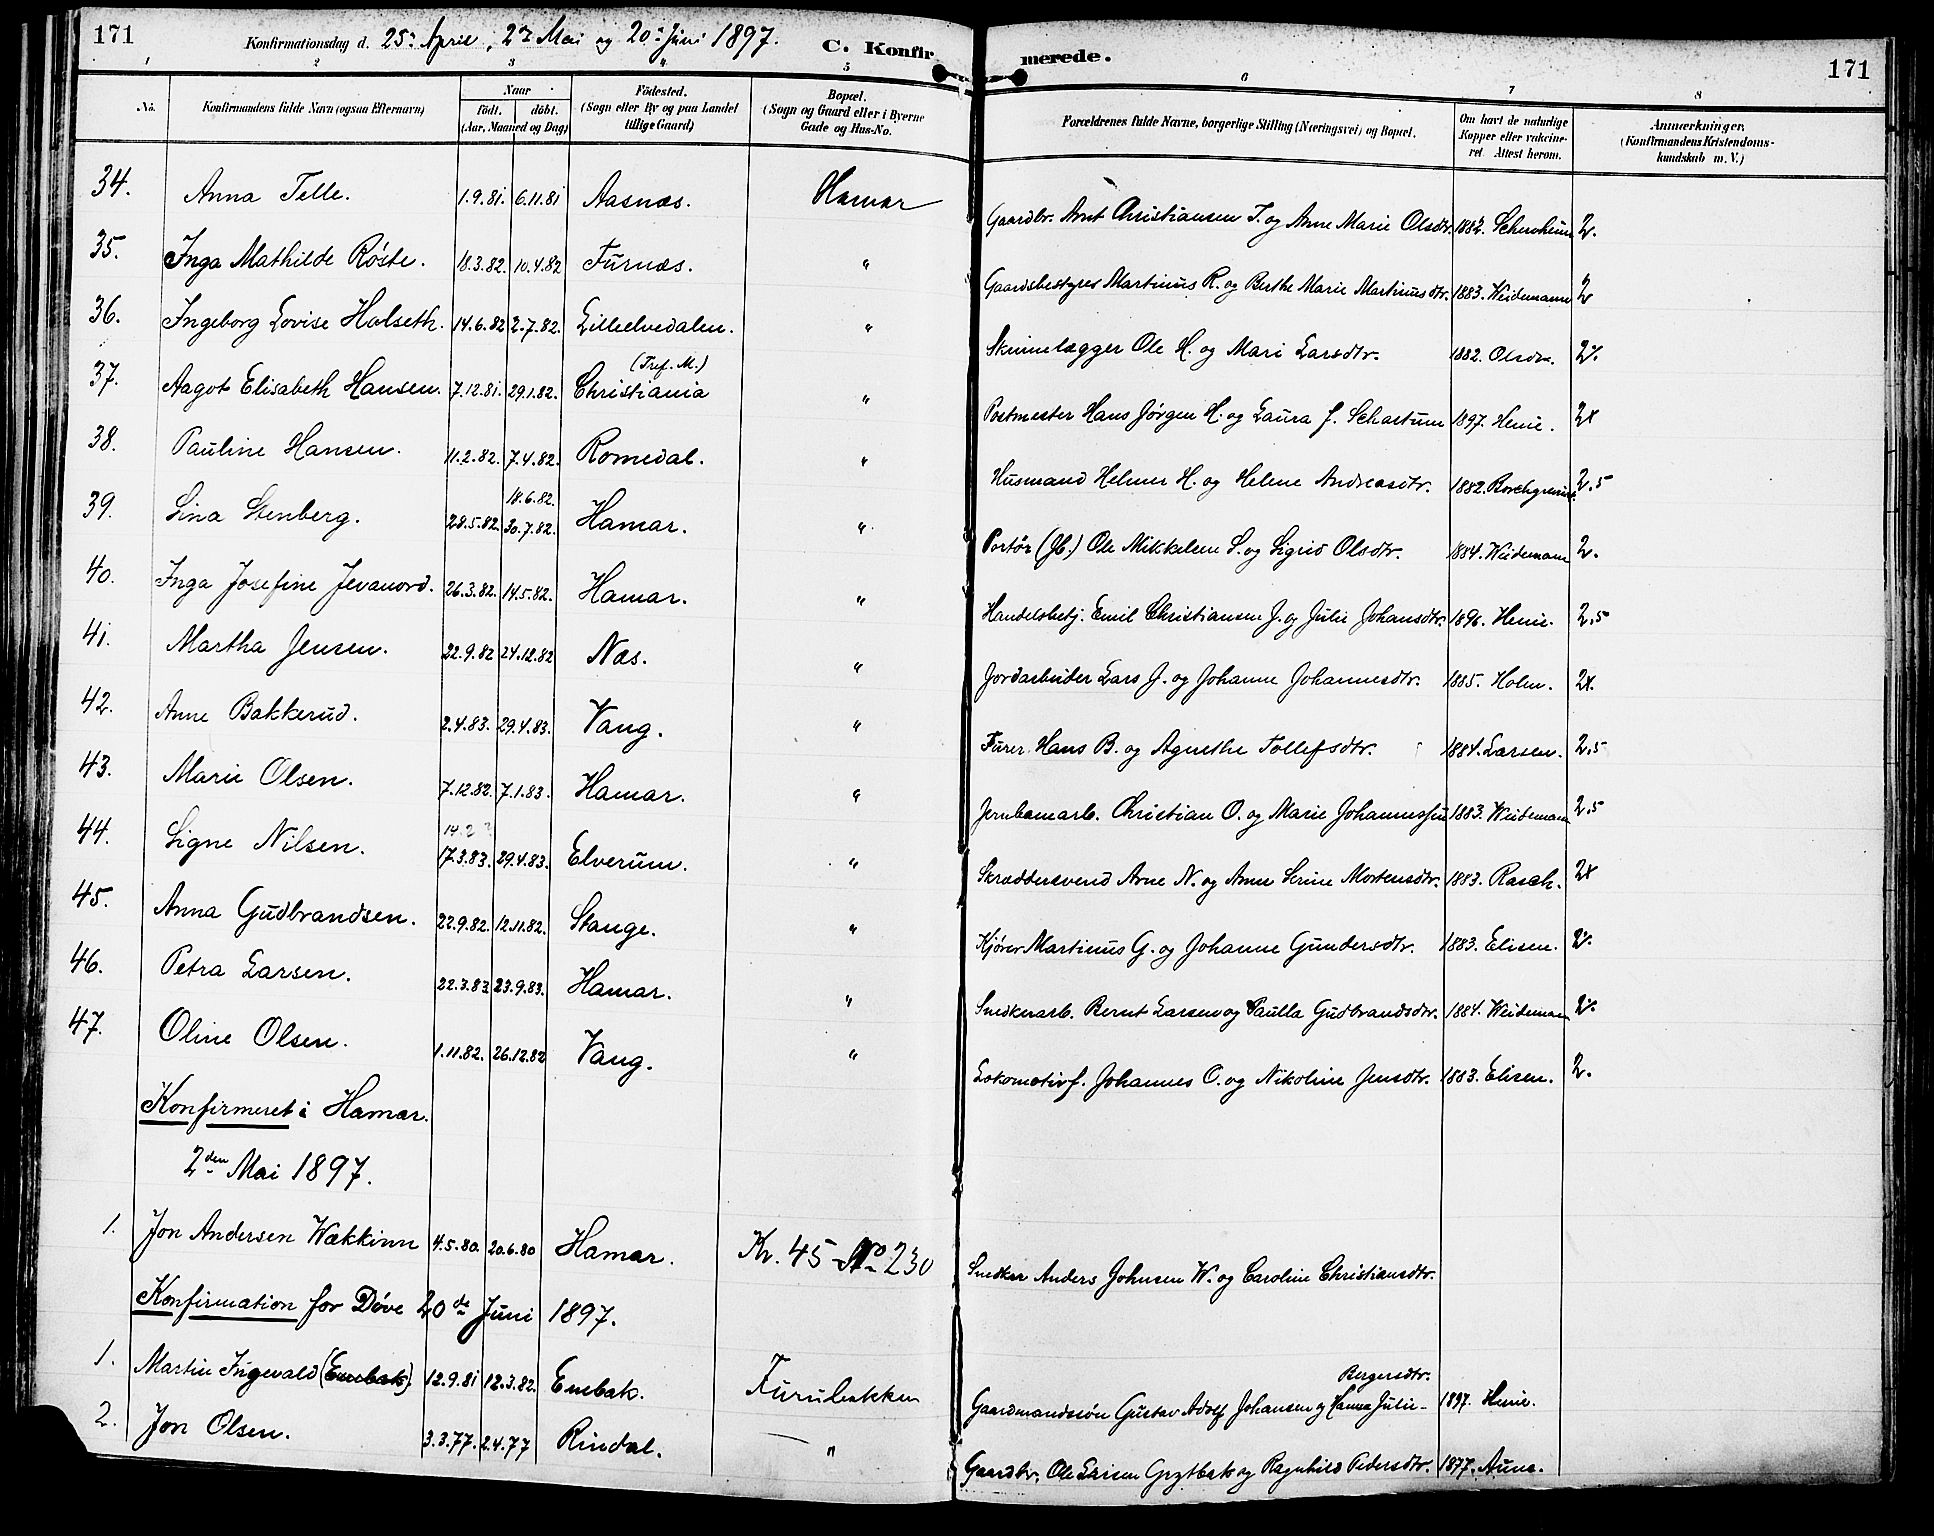 171 Konfirmationsdag d. 25: April, 2den Mai og 20: Juni 1897. C. Konfir merede. 171
1 2 3 4 5 6 7 8
No. Konfirmandens fulde Navn (ogsaa Efternavn) Naar født. døbt. (Aar, Maaned og Dag) Fødested. (Sogn eller By og paa Landet tillige Gaard) Bopæl. (Sogn og Gaard eller i Byerne Gade og Hus-No. Forældrenes fulde Navne, borgerlige Stilling (Næringsvei) og Bopæl. Om havt de naturlige Kopper eller vakcineret. Attest herom. Anmærkninger. (Konfirmandens Kristendomskundskab m. V.)
34. Anna Telle. 1.9.81. 6.11.81 Aasnæs. Hamar Gaardbr. Arnt Christiansen T. og Anne Marie Olsdtr. 1882. 2.
35. Inga Mathilde Røste. 18.3.82. 10.4.82 Furnæs. " Gaardsbestyrer Martinus R. og Berthe Marie Martinusdtr. 1883. Weidemann 2
36. Ingeborg Lovise Halseth. 14.6.82 2.7.82. Lilleelvedalen. " Skinnelægger Ole H. og Mari Larsdtr. 1882. Olsen. 2
37. Aagot Elisabeth Hansen. 7.12.81. 29.1.82. (Tref. M.) Christiania " Postmester Hans Jørgen H. og Laura J. Schartum 1897. Henie. 2x
38. Pauline Hansen. 11.2.82. 7.4.82. Romedal. " Husmand Helmer H. og Helene Andreasdtr. 1882. Borchgrevink 2,5
39. Lina Stenberg. 28.5.82. 18.6.82. 30.7.82. Hamar. " Portør (Jb.) Ole Mikkelsen S. og Sigrid Olsdtr. 1884. Weidemann 2.
40. Inga Josefine Jevanord. 26.3.82. 14.5.82. Hamar. " Handelsbetj. Emil Christiansen J. og Julie Johansdtr. 1896. Henie. 2,5
41. Martha Jensen. 22.9.82 24.12.82 Næs. " Jordarbeider Lars J. og Johanne Johannesdtr. 1885. Holm. 2x.
42. Anne Bakkerud. 2.4.83. 29.4.83. Vang. " Furer Hans B. og Agnethe Tollefsdtr. 1884. Larsen. 2,5
43. Marie Olsen. 7.12.82. 7.1.83. Hamar. " Jernbanearb. Christian O. og Marie Johannessen 1883. Weidemann 2,5
44. Signe Nilsen. 14.2? 17.3.83. 29.4.83. Elverum. " Skræddersvend Arne N. og Anne Serine Mortensdtr. 1883. Rasch. 2x
45. Anna Gudbrandsen. 22.9.82. 12.11.82. Stange. " Kjører Martinus G. og Johanne Gundersdtr. 1883. Elisen. 2
46. Petra Larsen. 22.7.83. 23.9.83. Hamar. " Snedkerarb. Bernt Larsen og Paulla Gudbrandsdtr. 1884. Weidemann 2
47. Oline Olsen. 1.11.82. 26.12.82 Vang. " Lokomotivf. Johannes O. og Nikoline Jensdtr. 1883. Elisen. 2.
Konfirmeret i Hamar.
2den Mai 1897.
1. Jon Andersen Wækkinn 4.5.80. 20.6.80 Hamar. Kv. 45 No 230 Snedker Anders Johnsen W. og Caroline Christiansdtr.
Konfirmation for Døve 20de Juni 1897.
1. Martin Ingevald (Enebak). 12.9.81 12.3.82. Enebak. Furubakken Gaardmandssøn Gustav Adolf Johansen og Hanna Julie Bergersdtr. 1897. Henie.
2. Jon Olsen. 3.3.77. 2.4.77 Rindal. " Gaardbr. Ole Larsen Grytbak og Ragnhild Pedersdtr. 1877. Aune.